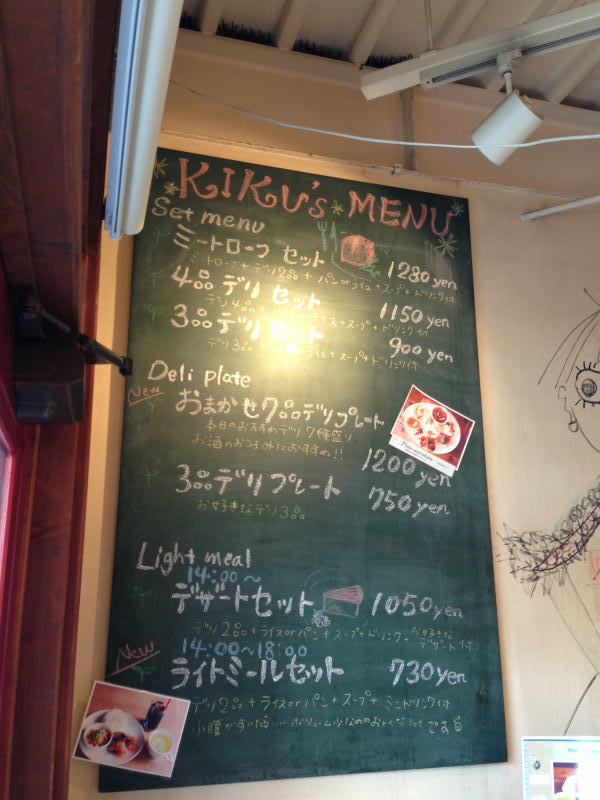 KIKU's MENU
Set menu
ミートローフ セット 1280 yen
ミートローフ + デリ2品 + パン or ライス + スープ + ドリンク付
4品 デリ セット 1150 yen
デリ4品 + ライス + スープ + ドリンク付
3品 デリ セット 900 yen
デリ3品 ライス + スープ + ドリンク付
Deli plate
New
おまかせ7品デリプレート
本日のおすすめデリ7種盛り
お酒のおつまみにおすすめ!!
1200 yen
3品デリプレート 750 yen
お好きなデリ3品
Light meal
14:00～
デザートセット 1050 yen
デリ2品 + ライス or パン + スープ + ドリンク + お好きなデザート付
14:00～18:00
New
ライトミールセット 730 yen
デリ2品 + ライス or パン + スープ + ミニドリンク付
小腹がすいた… ボリューム少なめの